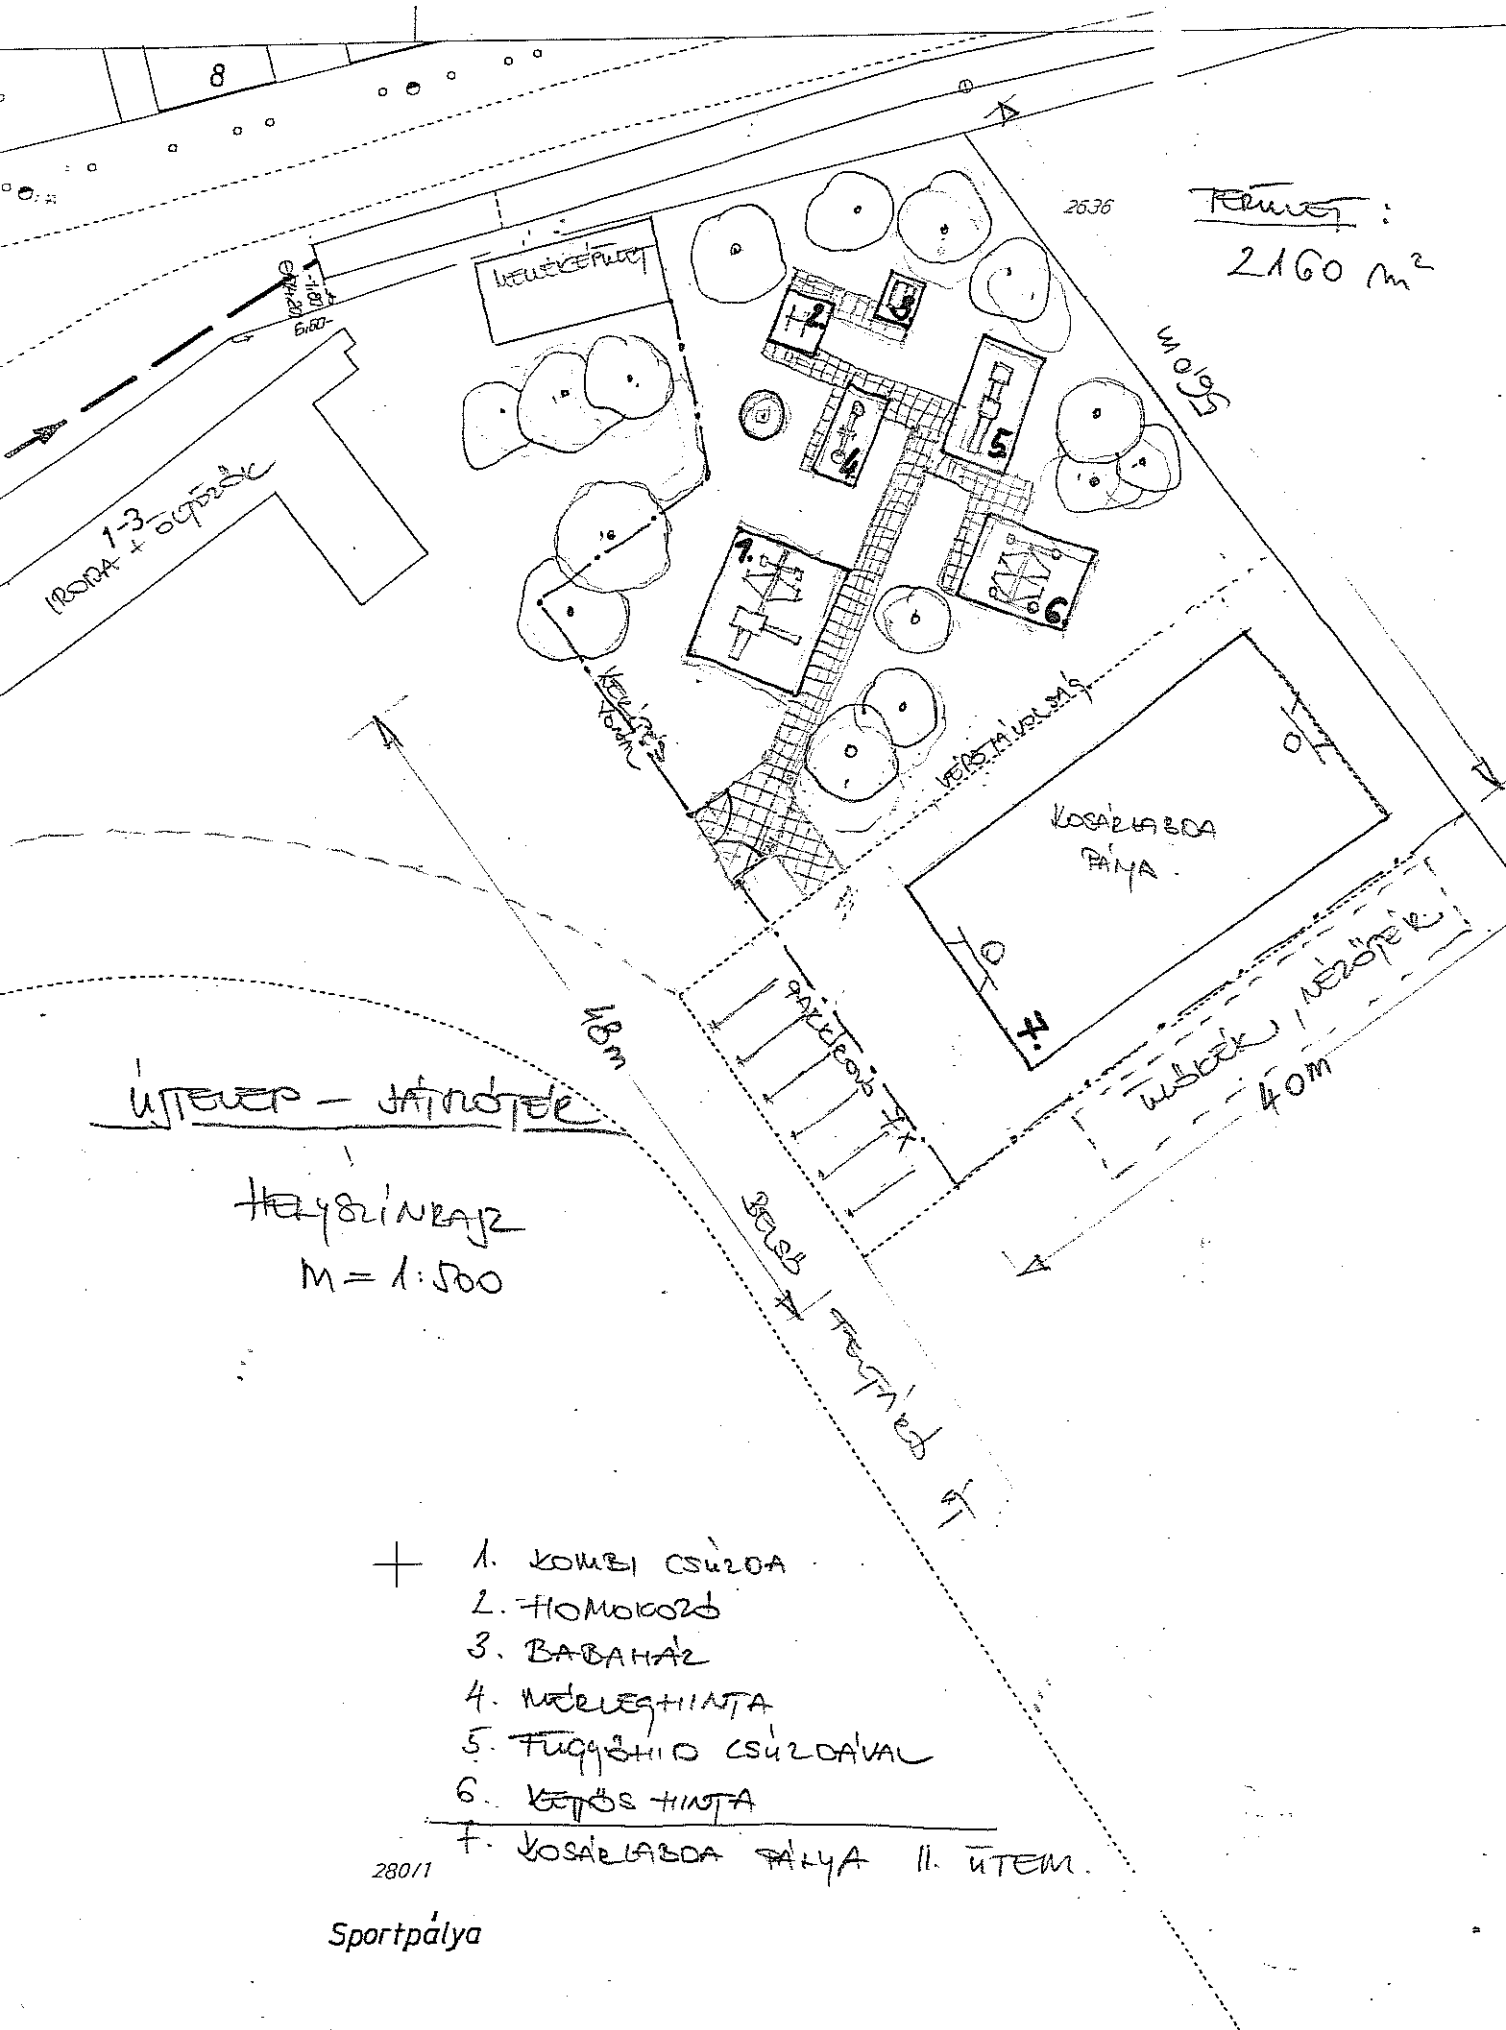 8
2636
TERÜLET :
2160 m²
MELLÉKÉPÜLET
6,60-
56,0 m
2.
3.
4.
5.
1.
6.
1-3
IRODA + ÖLTÖZŐK
VÉDŐTÁVOLSÁG
KOSÁRLABDA
PÁLYA
7.
ÜLŐKÉK, NÉZŐTÉR
40m
48m
BELSŐ
ÚT
ÚJTELEP – JÁTSZÓTÉR
HELYSZÍNRAJZ
M = 1:500
1. KOMBI CSÚZDA
2. HOMOKOZÓ
3. BABAHÁZ
4. MÉRLEGHINTA
5. FÜGGŐHÍD CSÚZDÁVAL
6. KETTŐS HINTA
7. KOSÁRLABDA PÁLYA II. ÜTEM.
280/1
Sportpálya